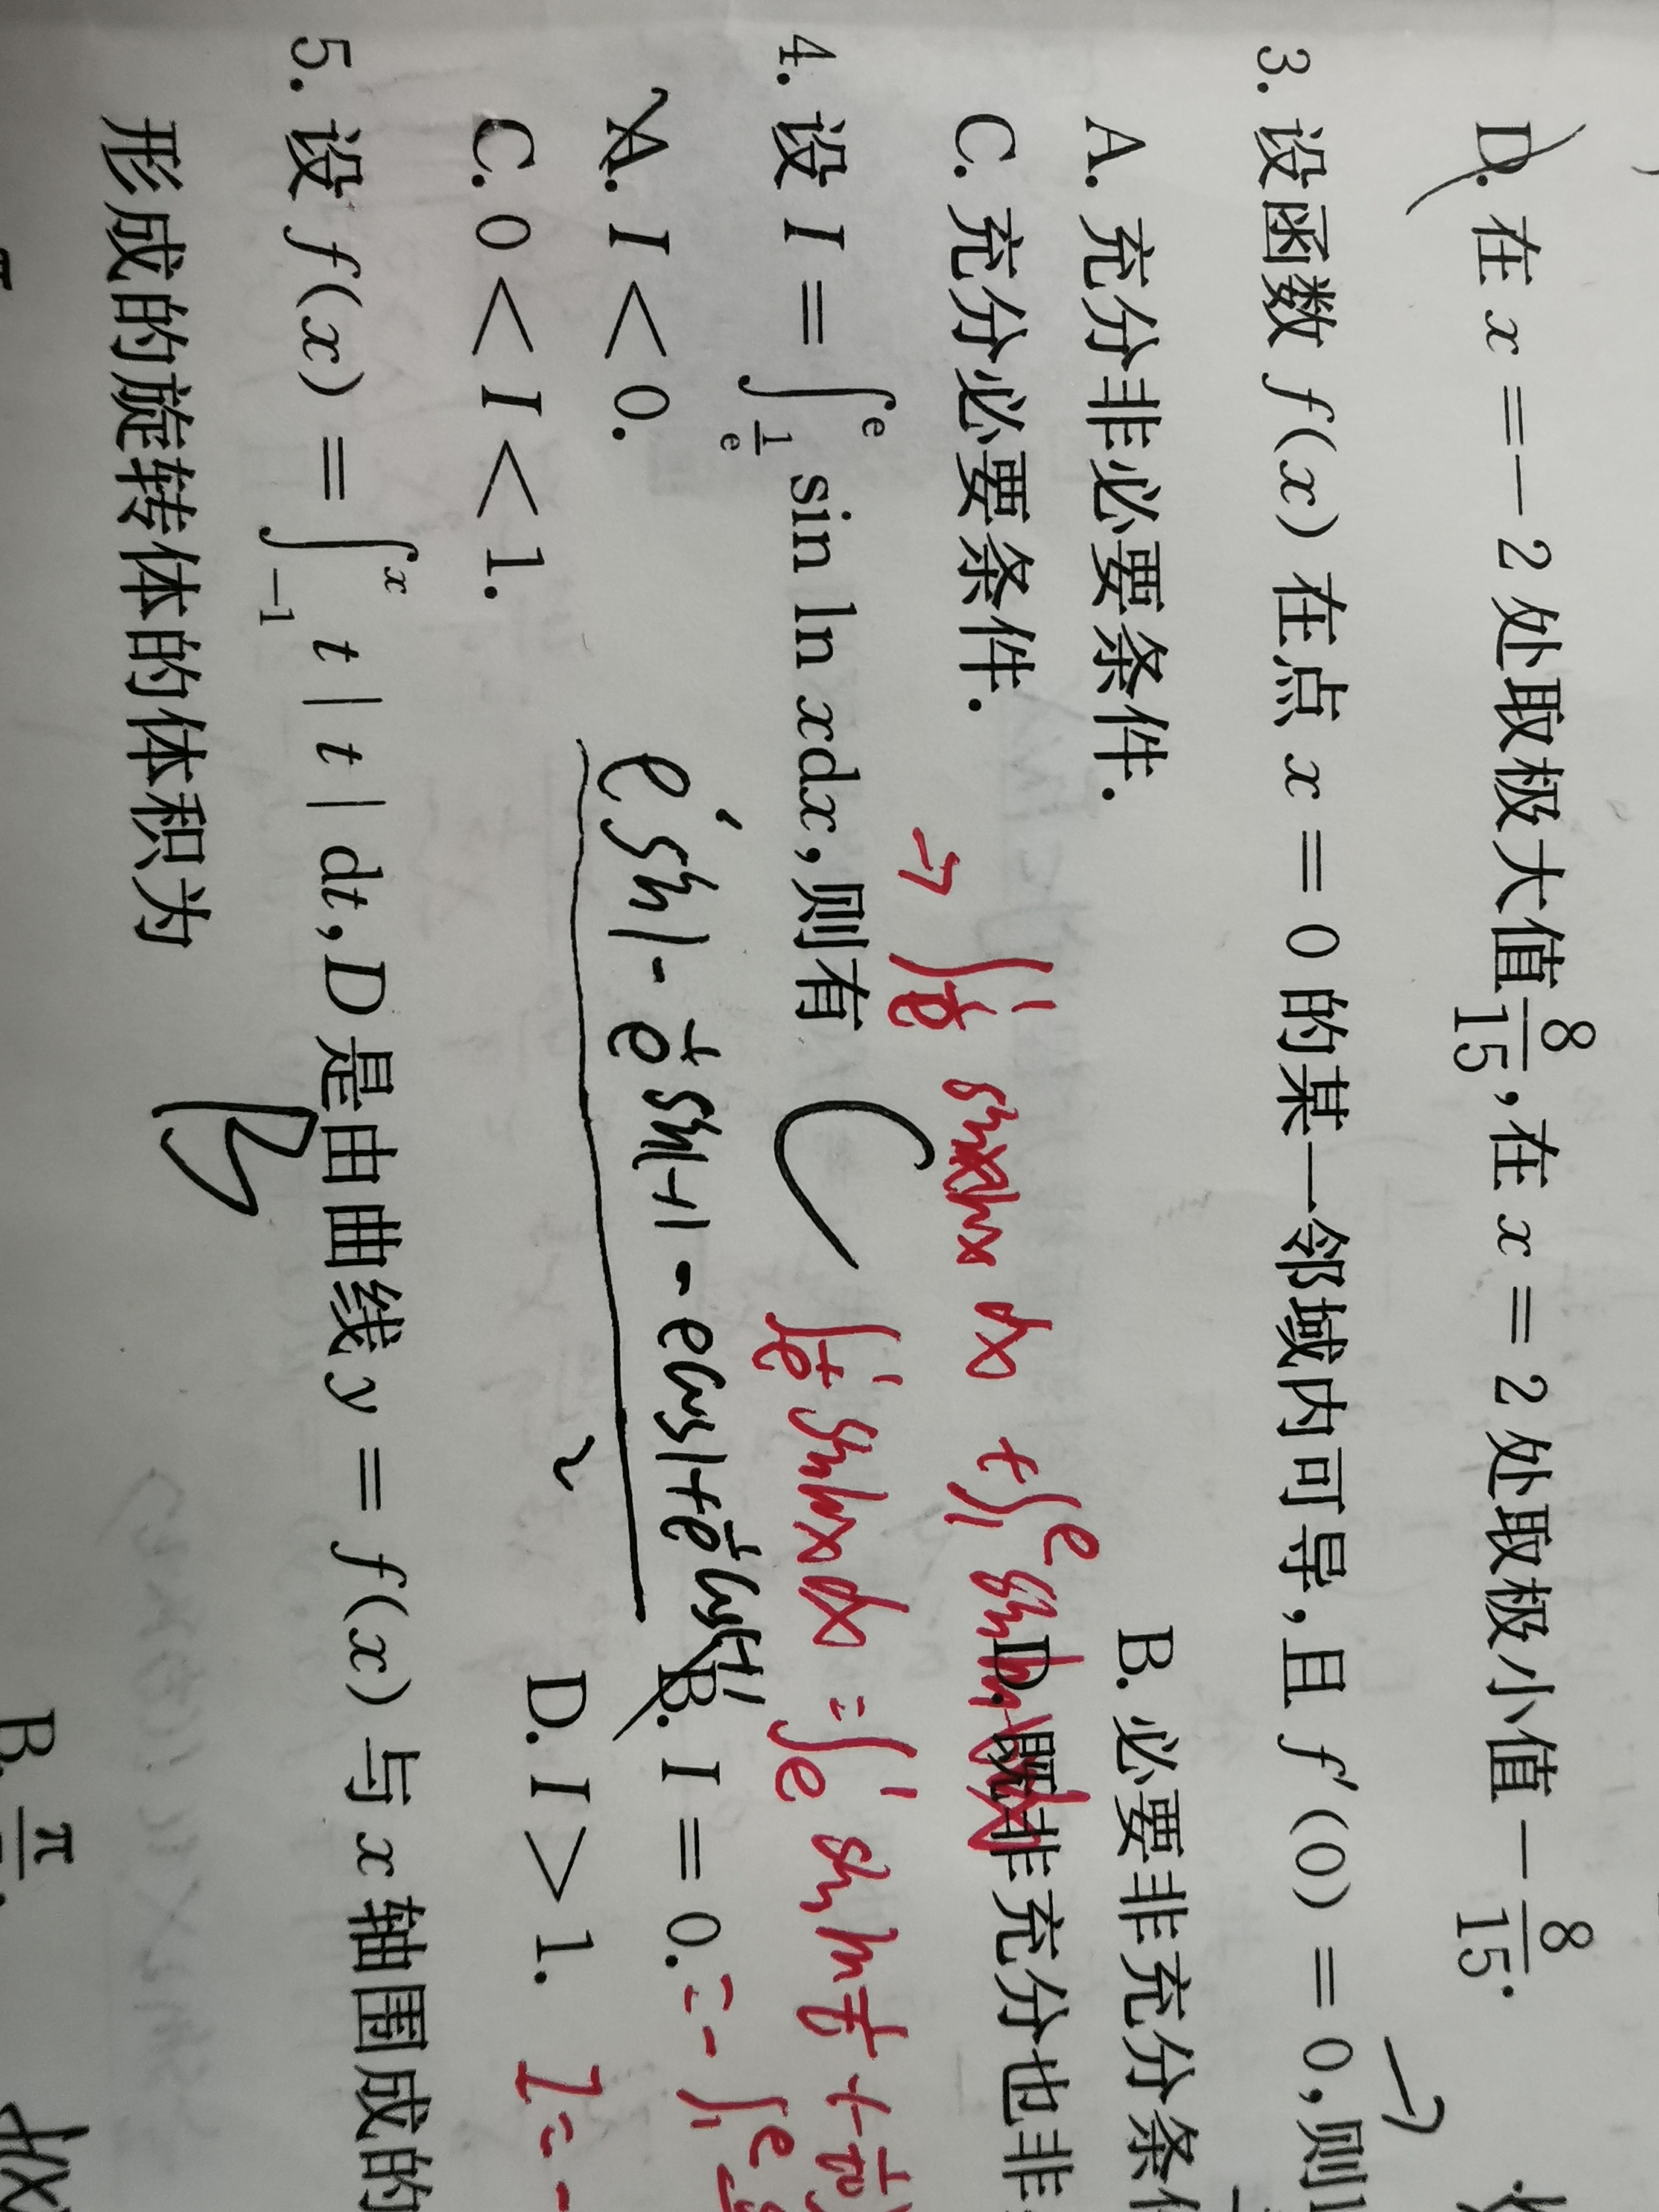 D. 在 x = −2 处取极大值 8/15, 在 x = 2 处取极小值 − 8/15.
3. 设函数 f(x) 在点 x = 0 的某一邻域内可导, 且 f′(0) = 0, 则
A. 充分非必要条件. B. 必要非充分条
C. 充分必要条件. D. 既非充分也非
→ ∫
dx + ∫₁ᵉ
4. 设 I = ∫_{1/e}^{e} sin ln xdx, 则有 C
∫_{1/e}^{1} sin ln x dx = ∫_e^1 sin ln 1/t
A. I < 0. B. I = 0. = − ∫₁ᵉ
e sin1 − 1/e sin1 − e cos1 + 1/e cos1
C. 0 < I < 1. D. I > 1. I = −
2
5. 设 f(x) = ∫_{−1}^{x} t | t | dt, D 是由曲线 y = f(x) 与 x 轴围成的
形成的旋转体的体积为
B. π